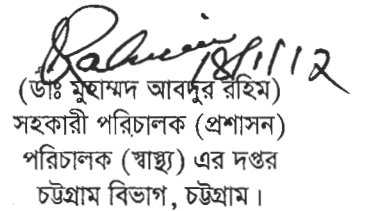 Rahim 18/1/12
(ডাঃ মুহাম্মদ আবদুর রহিম)
সহকারী পরিচালক (প্রশাসন)
পরিচালক (স্বাস্থ্য) এর দপ্তর
চট্টগ্রাম বিভাগ, চট্টগ্রাম।